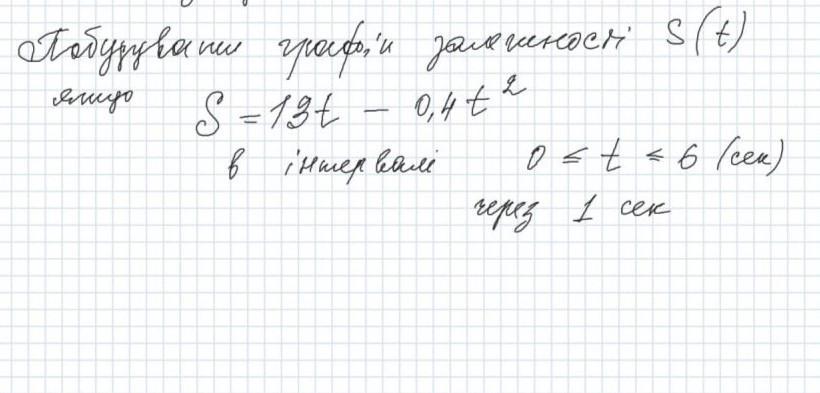 Побудувати графік залежності S(t)
якщо S = 13t - 0,4t²
в інтервалі 0 ≤ t ≤ 6 (сек)
через 1 сек